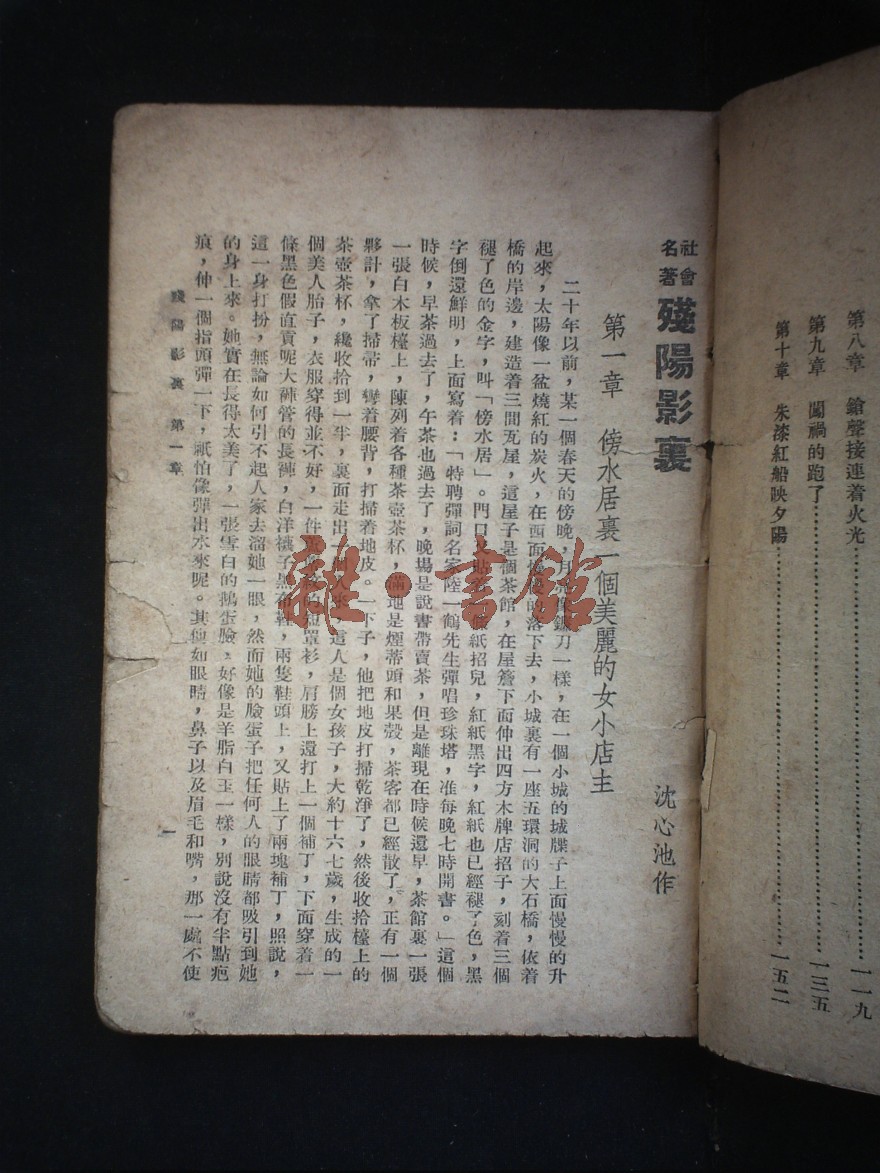 第八章　鎗聲接連着火光…………一一九
第九章　闖禍的跑了…………一三五
第十章　朱漆紅船映夕陽…………一五二
社會名著　殘陽影裏
沈心池作
第一章　傍水居裏一個美麗的女小店主
二十年以前，某一個春天的傍晚，月亮像鐮刀一樣，在一個小城的城牒子上面慢慢的升
起來，太陽像一盆燒紅的炭火，在西面慢慢的落下去，小城裏有一座五環洞的大石橋，依着
橋的岸邊，建造着三間瓦屋，這屋子是個茶館，在屋簷下面伸出四方木牌店招子，刻着三個
褪了色的金字，叫「傍水居」。門口又貼着紙招兒，紅紙黑字，紅紙也已經褪了色，黑
字倒還鮮明，上面寫着：「特聘彈詞名家陸一鶴先生彈唱珍珠塔，准每晚七時開書。」這個
時候，早茶過去了，午茶也過去了，晚場是說書帶賣茶，但是離現在時候還早，茶館裏一張
一張白木板檯上，陳列着各種茶壺茶杯，滿地是煙蒂頭和果殼，茶客都已經散了，正有一個
夥計，拿了掃帚，彎着腰背，打掃着地皮。一下子，他把地皮打掃乾淨了，然後收拾檯上的
茶壺茶杯，纔收拾到一半，裏面走出一個人來，這人是個女孩子，大約十六七歲，生成的一
個美人胎子，衣服穿得並不好，一件的短罩衫，肩膀上還打上一個補丁，下面穿着一
條黑色假直貢呢大褲管的長褲，白洋襪子黑布鞋，兩隻鞋頭上，又貼上了兩塊補丁，照說，
這一身打扮，無論如何引不起人家去溜她一眼，然而她的臉蛋子把任何人的眼睛都吸引到她
的身上來。她實在長得太美了，一張雪白的鵝蛋臉，好像是羊脂白玉一樣，別說沒有半點疤
痕，伸一個指頭彈一下，祇怕像彈出水來呢。其他如眼睛，鼻子以及眉毛和嘴，那一處不使
殘陽影裏　第一章
一
雜·書館